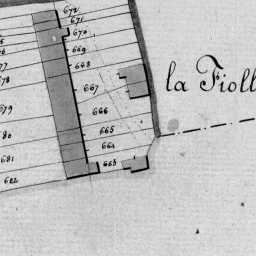 672
671
670
669
668
667
666
665
664
663
677
678
679
80
681
682
la Fioll